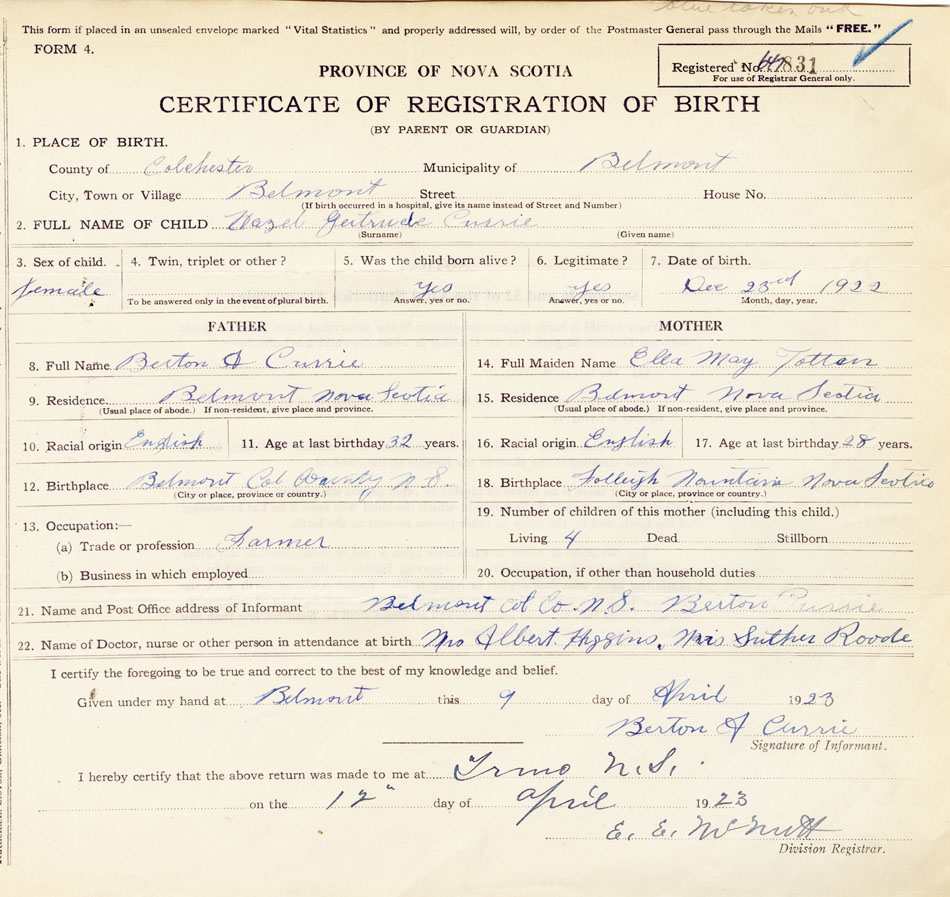 blue taken out
This form if placed in an unsealed envelope marked "Vital Statistics" and properly addressed will, by order of the Postmaster General pass through the Mails "FREE."
FORM 4.
Registered No. 831
For use of Registrar General only.
PROVINCE OF NOVA SCOTIA
CERTIFICATE OF REGISTRATION OF BIRTH
(BY PARENT OR GUARDIAN)
1. PLACE OF BIRTH.
County of Colchester Municipality of Belmont
City, Town or Village Belmont Street House No.
(If birth occurred in a hospital, give its name instead of Street and Number)
2. FULL NAME OF CHILD Hazel Gertrude Currie
(Surname) (Given name)
3. Sex of child. 4. Twin, triplet or other? 5. Was the child born alive? 6. Legitimate? 7. Date of birth.
female yes yes Dec 23rd 1922
To be answered only in the event of plural birth. Answer, yes or no. Answer, yes or no. Month, day, year.
FATHER MOTHER
8. Full Name Berton A Currie 14. Full Maiden Name Ella May Totten
9. Residence. Belmont Nova Scotia 15. Residence Belmont Nova Scotia
(Usual place of abode.) If non-resident, give place and province. (Usual place of abode.) If non-resident, give place and province.
10. Racial origin English 11. Age at last birthday 32 years. 16. Racial origin English 17. Age at last birthday 28 years.
12. Birthplace Belmont Col County N.S. 18. Birthplace Folleigh Mountain Nova Scotia
(City or place, province or country.) (City or place, province or country.)
13. Occupation:— 19. Number of children of this mother (including this child.)
(a) Trade or profession Farmer Living 4 Dead Stillborn
(b) Business in which employed 20. Occupation, if other than household duties
21. Name and Post Office address of Informant Belmont Col Co. N.S. Berton Currie
22. Name of Doctor, nurse or other person in attendance at birth Mrs Albert Higgins, Mrs Luther Roode
I certify the foregoing to be true and correct to the best of my knowledge and belief.
Given under my hand at Belmont this 9 day of April 1923
Berton A Currie
Signature of Informant.
I hereby certify that the above return was made to me at N.S.
on the 12" day of April 1923
E. E. McNutt
Division Registrar.